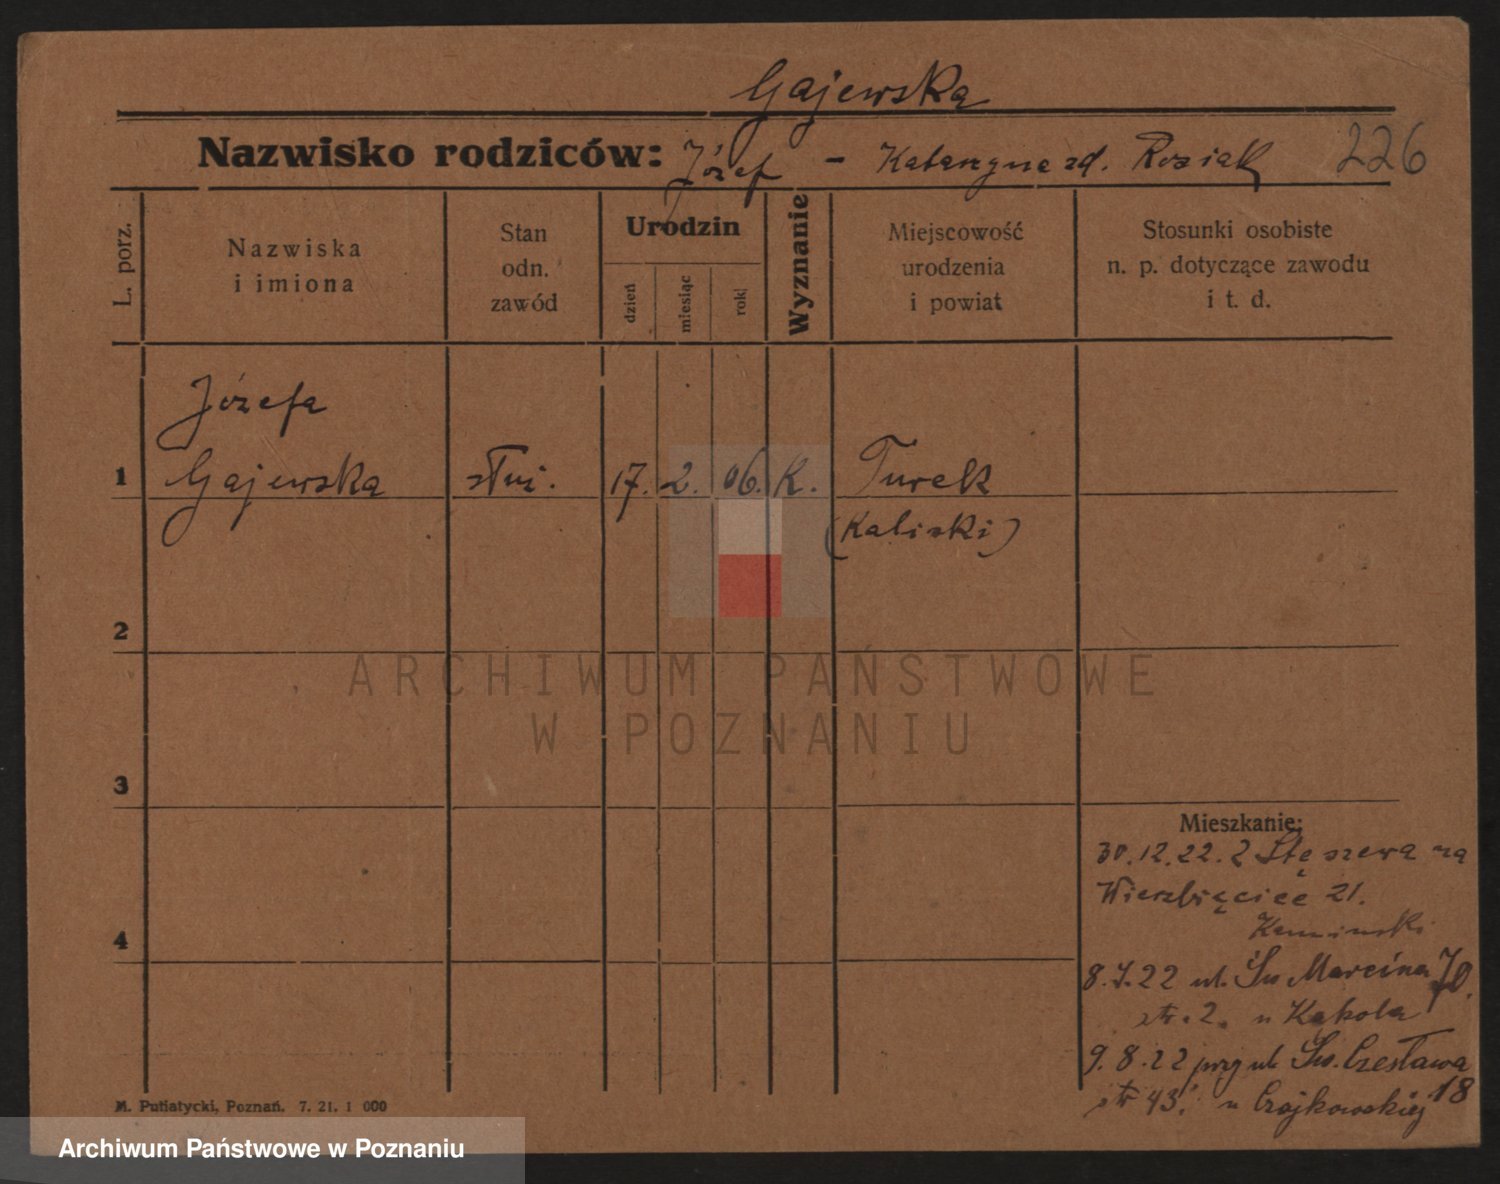 Gajewska
Nazwisko rodziców: Józef - Katarzyna zd. Rosiak 226
L. porz.
Nazwiska
i imiona
Stan
odn.
zawód
Urodzin
dzień
miesiąc
rok
Wyznanie
Miejscowość
urodzenia
i powiat
Stosunki osobiste
n. p. dotyczące zawodu
i t. d.
Józefa
1 Gajewska służ. 17. 2. 06. K. Turek
(Kaliski)
2
ARCHIWUM PAŃSTWOWE
W POZNANIU
3
Mieszkanie:
30.12.22. z Stęszewa na
Wierzbięcice 21.
Kaminski
4
8.7.22 ul. Św Marcina 70.
str. 2. u Kąkola
9.8.22 przy ul. Św. Czesława 18
str 43. u Czajkowskiej
M. Putiatycki, Poznań. 7. 21. 1 000
Archiwum Państwowe w Poznaniu